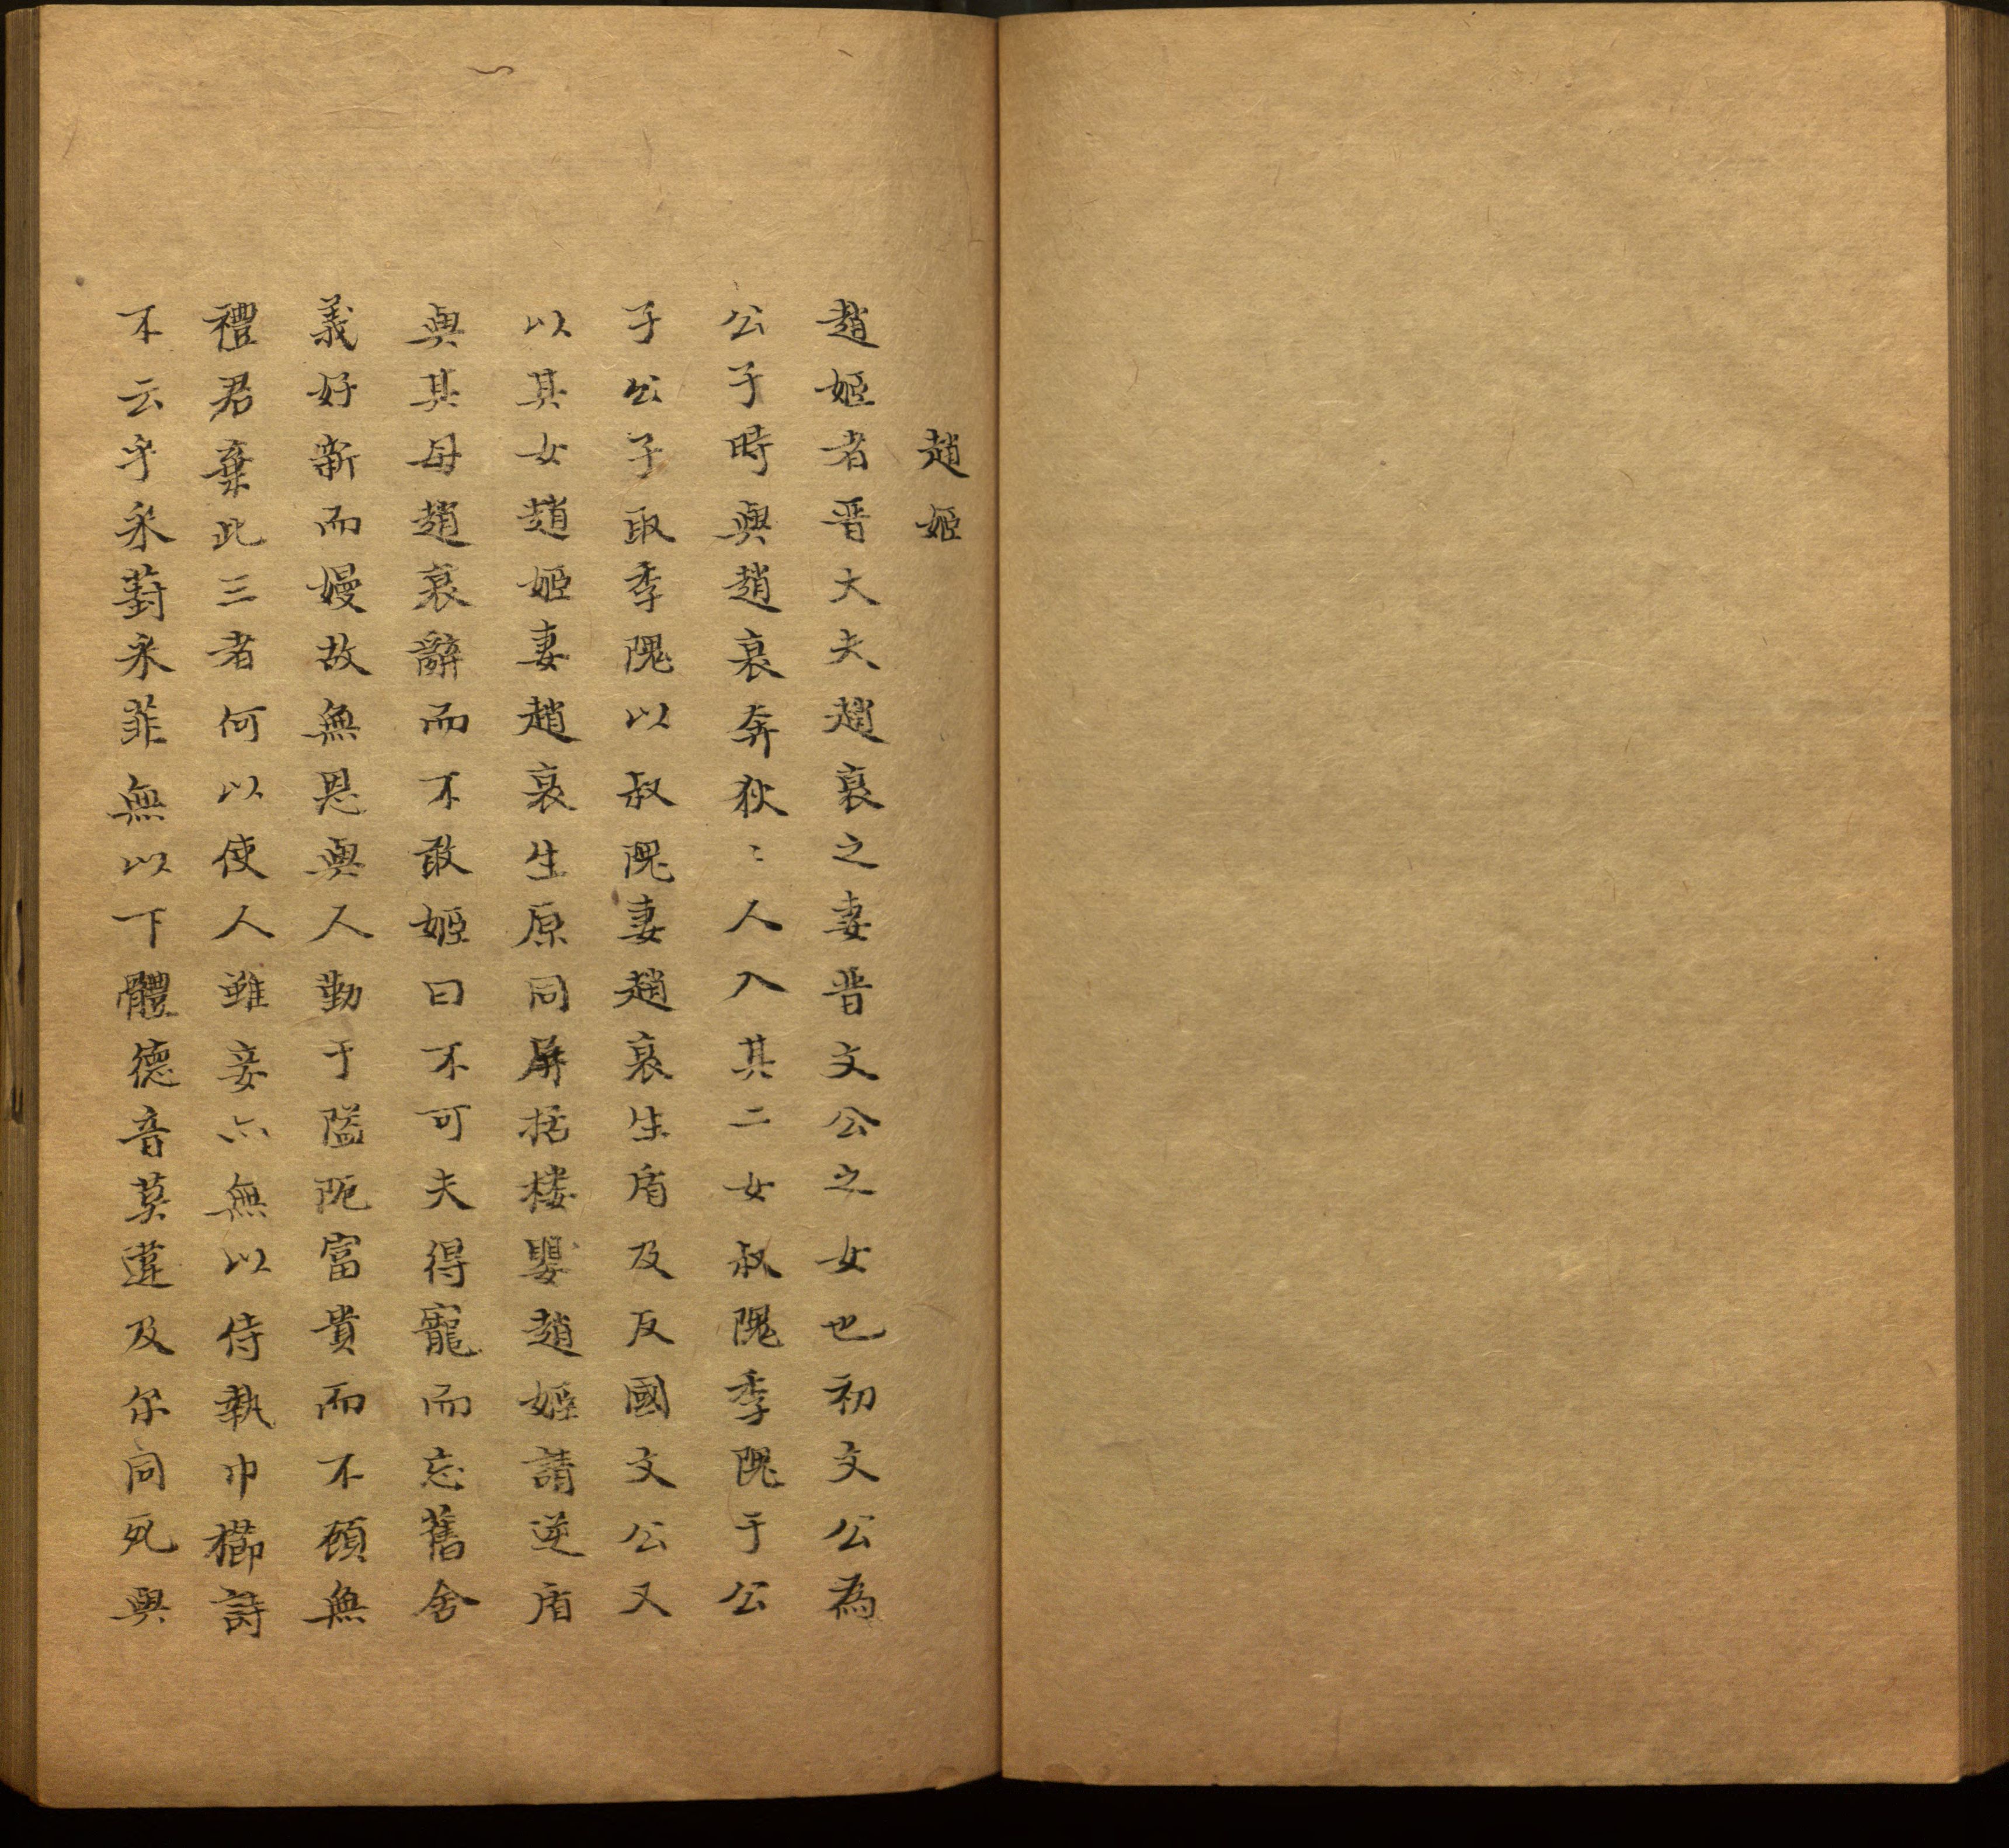 趙姬
趙姬者晋大夫趙衰之妻晋文公之女也初文公為
公子時與趙衰奔狄〻人入其二女叔隗季隗于公
子公子取季隗以叔隗妻趙衰生盾及反國文公又
以其女趙姬妻趙衰生原同屏括楼嬰趙姬請逆盾
與其母趙衰辭而不敢姬曰不可夫得寵而忘舊舍
義好新而嫚故無恩與人勤于隘阨富貴而不顧無
禮君棄此三者何以使人雖妾亦無以侍執巾櫛詩
不云乎采葑采菲無以下體德音莫違及尔同死與